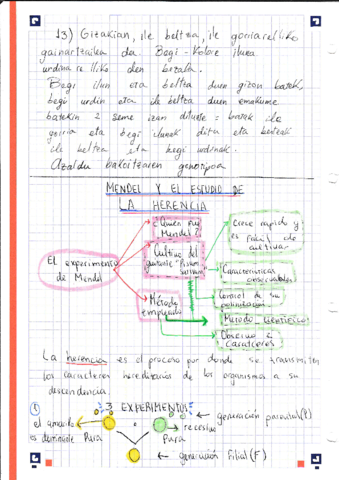 13) Gizakian, ile beltza, ile gorriarekiko
gainartzailea da. Begi-kolore iluna
urdinarekiko den bezala.
Begi ilun eta beltza duen gizon batek,
begi urdin eta ile beltza duen emakume
batekin 2 seme izan dituzte = batek ile
gorria eta begi ilunak ditu eta besteak
ile beltza eta begi urdinak.
Azaldu bakoitzaren genotipoa
MENDEL Y EL ESTUDIO DE
LA HERENCIA
El experimento
de Mendel
¿Quién fue
Mendel?
Cultivo del
guisante "Pisum
sativum"
Método
empleado
Crece rápido y
es fácil de
cultivar
Características
observables
Control de su
polinización
Método científico
Observó 2
caracteres
La herencia es el proceso por donde se transmiten
los caracteres hereditarios de los organismos a su
descendencia.
① 3 EXPERIMENTOS
el amarillo
es dominante
Pura
Pura
generación parental (P)
recesivo
generación Filial (F)